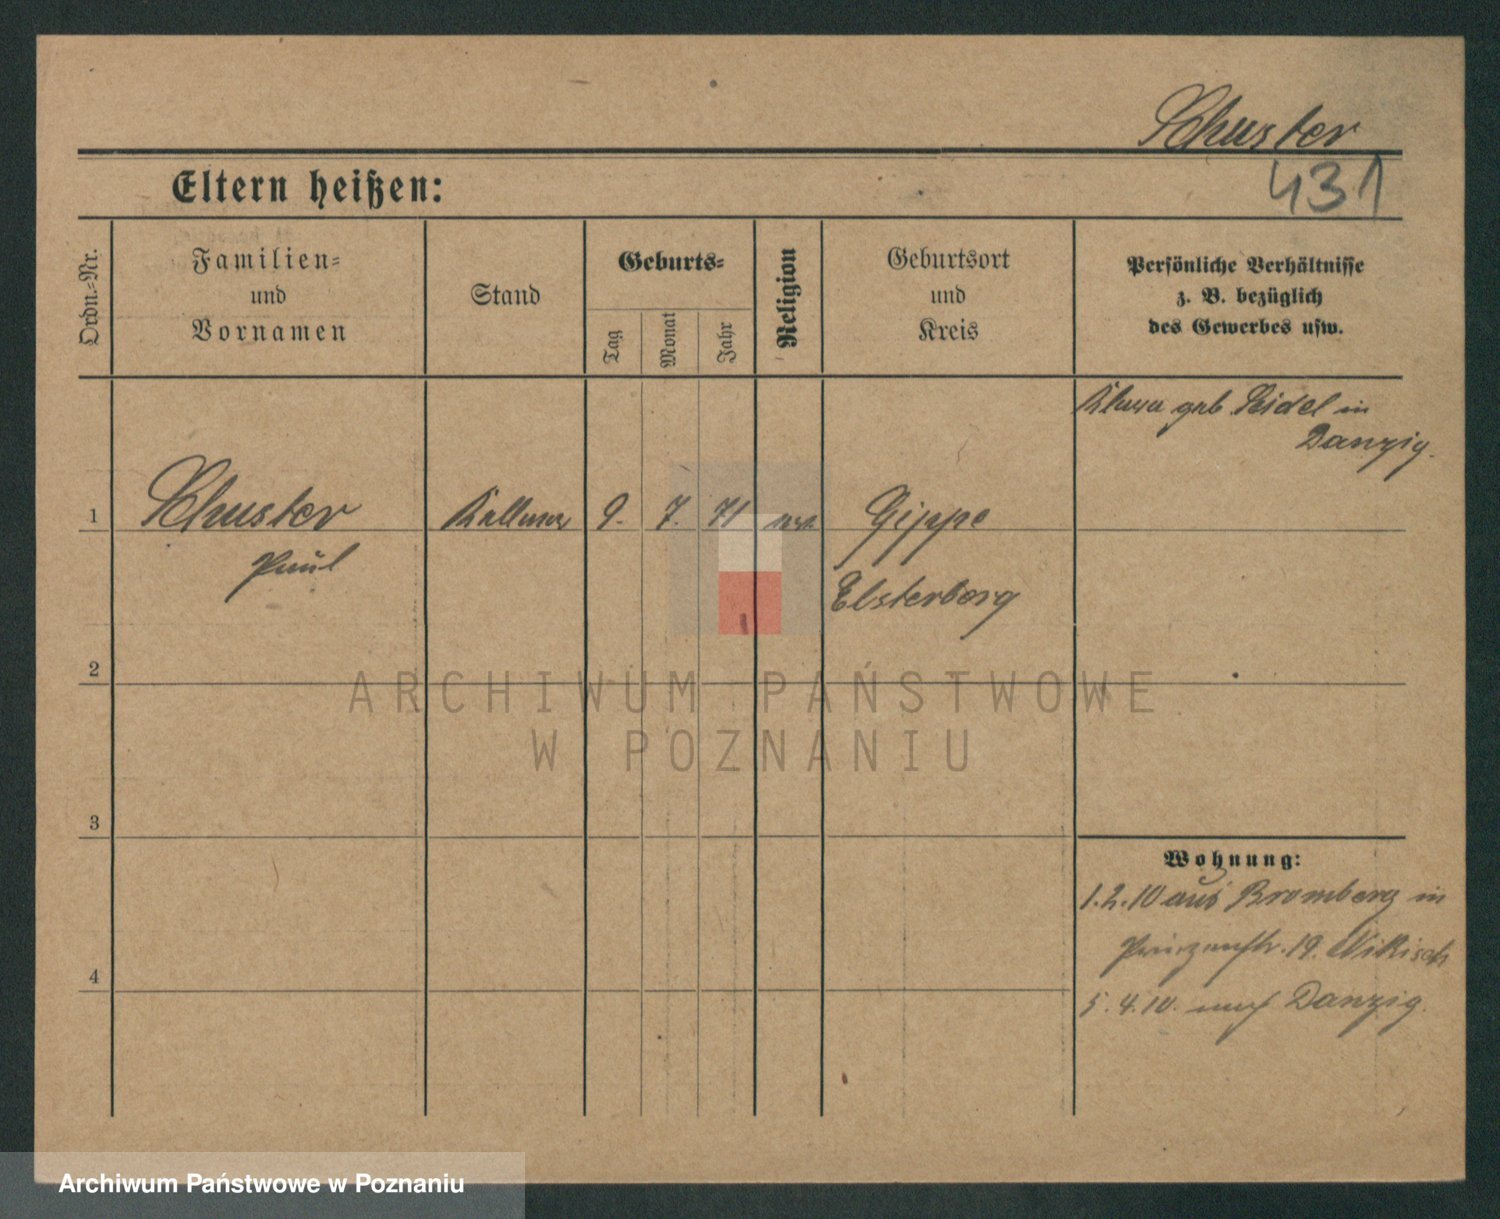 Schuster
431
Eltern heißen:
Ordn.-Nr.
Familien-
und
Vornamen
Stand
Geburts-
Tag
Monat
Jahr
Religion
Geburtsort
und
Kreis
Persönliche Verhältnisse
z. B. bezüglich
des Gewerbes usw.
geb. Seidel in
Danzig.
1
Schuster
Kellner
9.
7.
71
Gippe
Paul
Elsterberg
2
ARCHIWUM PAŃSTWOWE
W POZNANIU
3
Wohnung:
1.2.10 aus Bromberg in
Prinzenstr. 19.
4
5.4.10. nach Danzig.
Archiwum Państwowe w Poznaniu